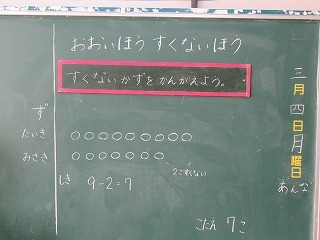 おおいほう すくないほう
すくないかずをかんがえよう。
三月四日月曜日
あんな
ず
たいき ○○○○○○○○○
みさき ○○○○○○○
2こすくない
しき 9-2=7
こたえ 7こ